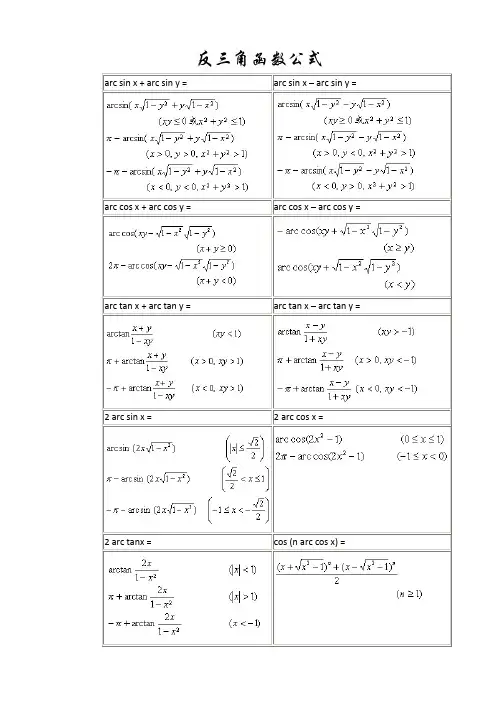 反三角函数公式
arc sin x + arc sin y =
arcsin( x√1−y² + y√1−x² )
(xy ≤ 0 或 x² + y² ≤ 1)
π − arcsin( x√1−y² + y√1−x² )
(x > 0, y > 0, x² + y² > 1)
−π − arcsin( x√1−y² + y√1−x² )
(x < 0, y < 0, x² + y² > 1)
arc sin x – arc sin y =
arcsin( x√1−y² − y√1−x² )
(xy ≥ 0 或 x² + y² ≤ 1)
π − arcsin( x√1−y² − y√1−x² )
(x > 0, y < 0, x² + y² > 1)
−π − arcsin( x√1−y² − y√1−x² )
(x < 0, y > 0, x² + y² > 1)
arc cos x + arc cos y =
arc cos(xy − √1−x² √1−y²)
(x + y ≥ 0)
2π − arc cos(xy − √1−x² √1−y²)
(x + y < 0)
arc cos x – arc cos y =
− arc cos(xy + √1−x² √1−y²)
(x ≥ y)
arc cos(xy + √1−x² √1−y²)
(x < y)
arc tan x + arc tan y =
arctan (x+y)/(1−xy) (xy < 1)
π + arctan (x+y)/(1−xy) (x > 0, xy > 1)
−π + arctan (x+y)/(1−xy) (x < 0, xy > 1)
arc tan x – arc tan y =
arctan (x−y)/(1+xy) (xy > −1)
π + arctan (x−y)/(1+xy) (x > 0, xy < −1)
−π + arctan (x−y)/(1+xy) (x < 0, xy < −1)
2 arc sin x =
arcsin (2x√1−x²) (|x| ≤ √2/2)
π − arcsin (2x√1−x²) (√2/2 < x ≤ 1)
−π − arcsin (2x√1−x²) (−1 ≤ x < −√2/2)
2 arc cos x =
arc cos(2x² − 1) (0 ≤ x ≤ 1)
2π − arc cos(2x² − 1) (−1 ≤ x < 0)
2 arc tanx =
arctan 2x/(1−x²) (|x| < 1)
π + arctan 2x/(1−x²) (|x| > 1)
−π + arctan 2x/(1−x²) (x < −1)
cos (n arc cos x) =
((x + √x²−1)ⁿ + (x − √x²−1)ⁿ)/2
(n ≥ 1)